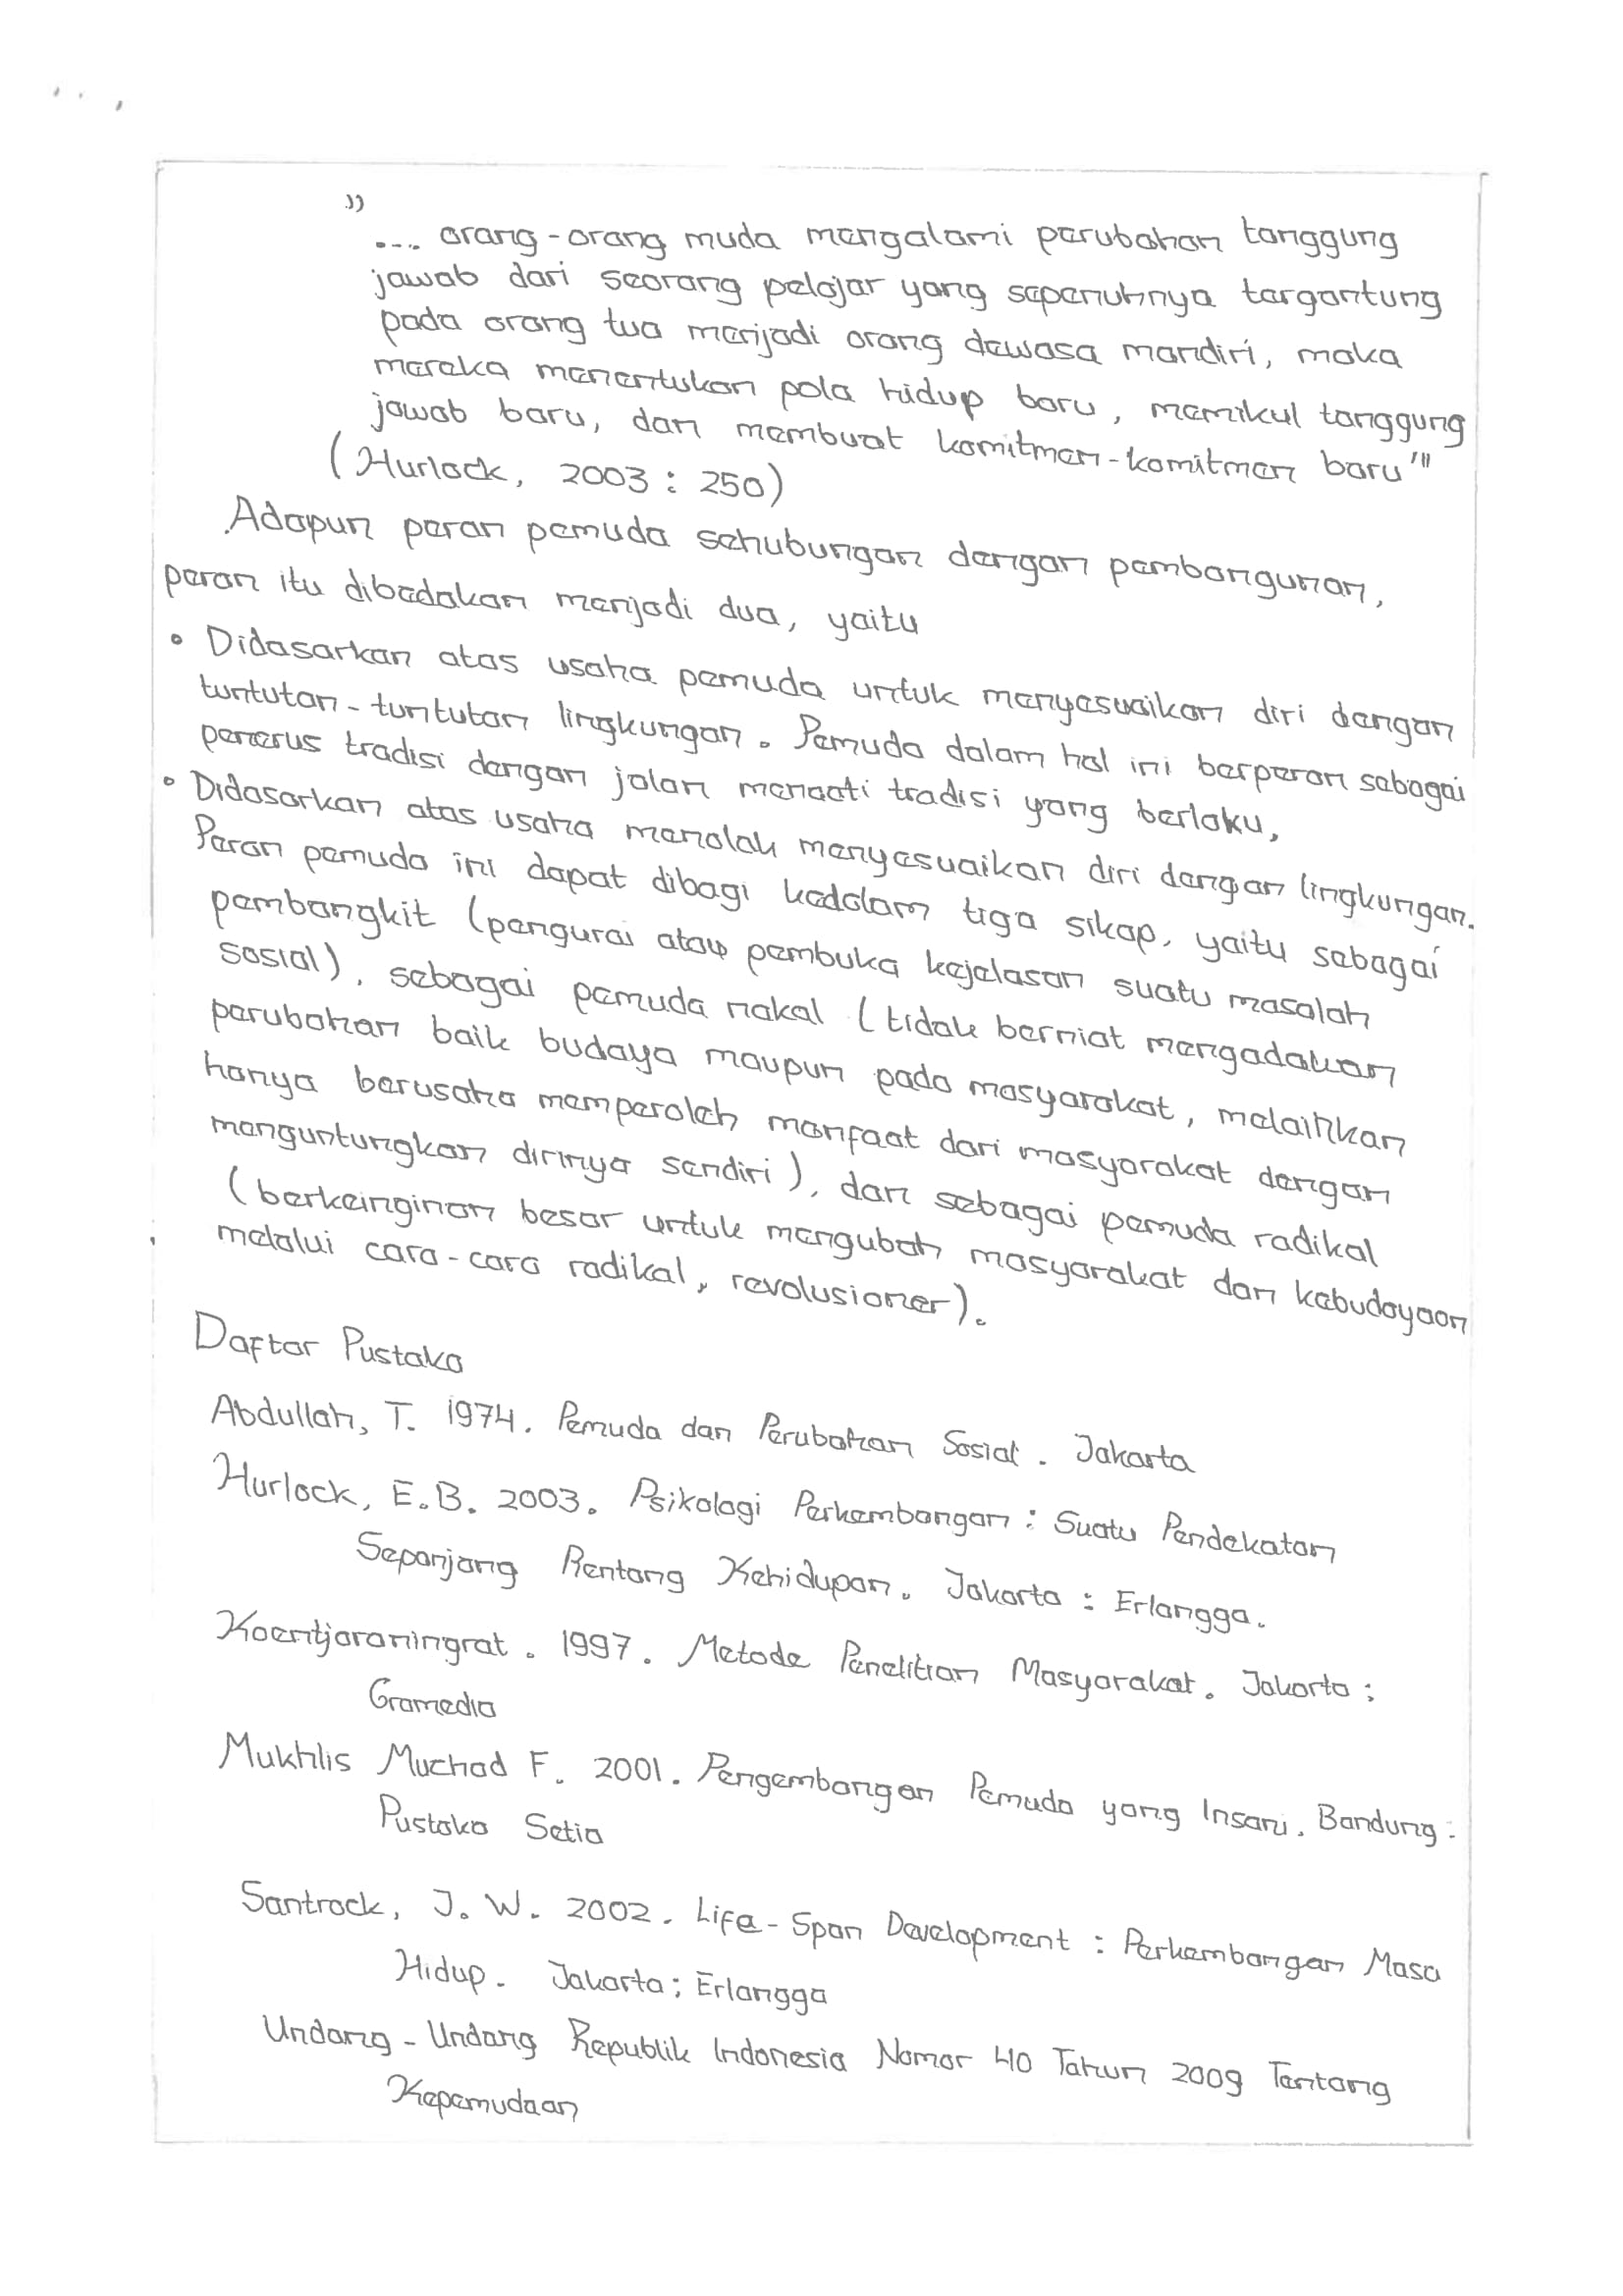 "
.... orang-orang muda mengalami perubahan tanggung
jawab dari seorang pelajar yang sepenuhnya tergantung
pada orang tua menjadi orang dewasa mandiri, maka
mereka menentukan pola hidup baru, memikul tanggung
jawab baru, dan membuat komitmen-komitmen baru'"
(Hurlock, 2003 : 250)
Adapun peran pemuda sehubungan dengan pembangunan,
peran itu dibedakan menjadi dua, yaitu
• Didasarkan atas usaha pemuda untuk menyesuaikan diri dengan
tuntutan-tuntutan lingkungan. Pemuda dalam hal ini berperan sebagai
penerus tradisi dengan jalan menaati tradisi yang berlaku,
• Didasarkan atas usaha menolak menyesuaikan diri dengan lingkungan.
Peran pemuda ini dapat dibagi kedalam tiga sikap, yaitu sebagai
pembangkit (pengurai atau pembuka kejelasan suatu masalah
sosial), sebagai pemuda nakal (tidak berniat mengadakan
perubahan baik budaya maupun pada masyarakat, melaihkan
hanya berusaha memperoleh manfaat dari masyarakat dengan
menguntungkan dirinya sendiri), dan sebagai pemuda radikal
(berkeinginan besar untuk mengubah masyarakat dan kebudayaan
melalui cara-cara radikal, revolusioner).
Daftar Pustaka
Abdullah, T. 1974. Pemuda dan Perubahan Sosial. Jakarta
Hurlock, E.B. 2003. Psikologi Perkembangan : Suatu Pendekatan
Sepanjang Rentang Kehidupan. Jakarta : Erlangga.
Koentjaraningrat. 1997. Metode Penelitian Masyarakat. Jakarta :
Gramedia
Mukhlis Muchad F. 2001. Pengembangan Pemuda yang Insani. Bandung :
Pustaka Setia
Santrock, J. W. 2002. Life-Span Development : Perkembangan Masa
Hidup. Jakarta ; Erlangga
Undang-Undang Republik Indonesia Nomor 40 Tahun 2009 Tentang
Kepemudaan